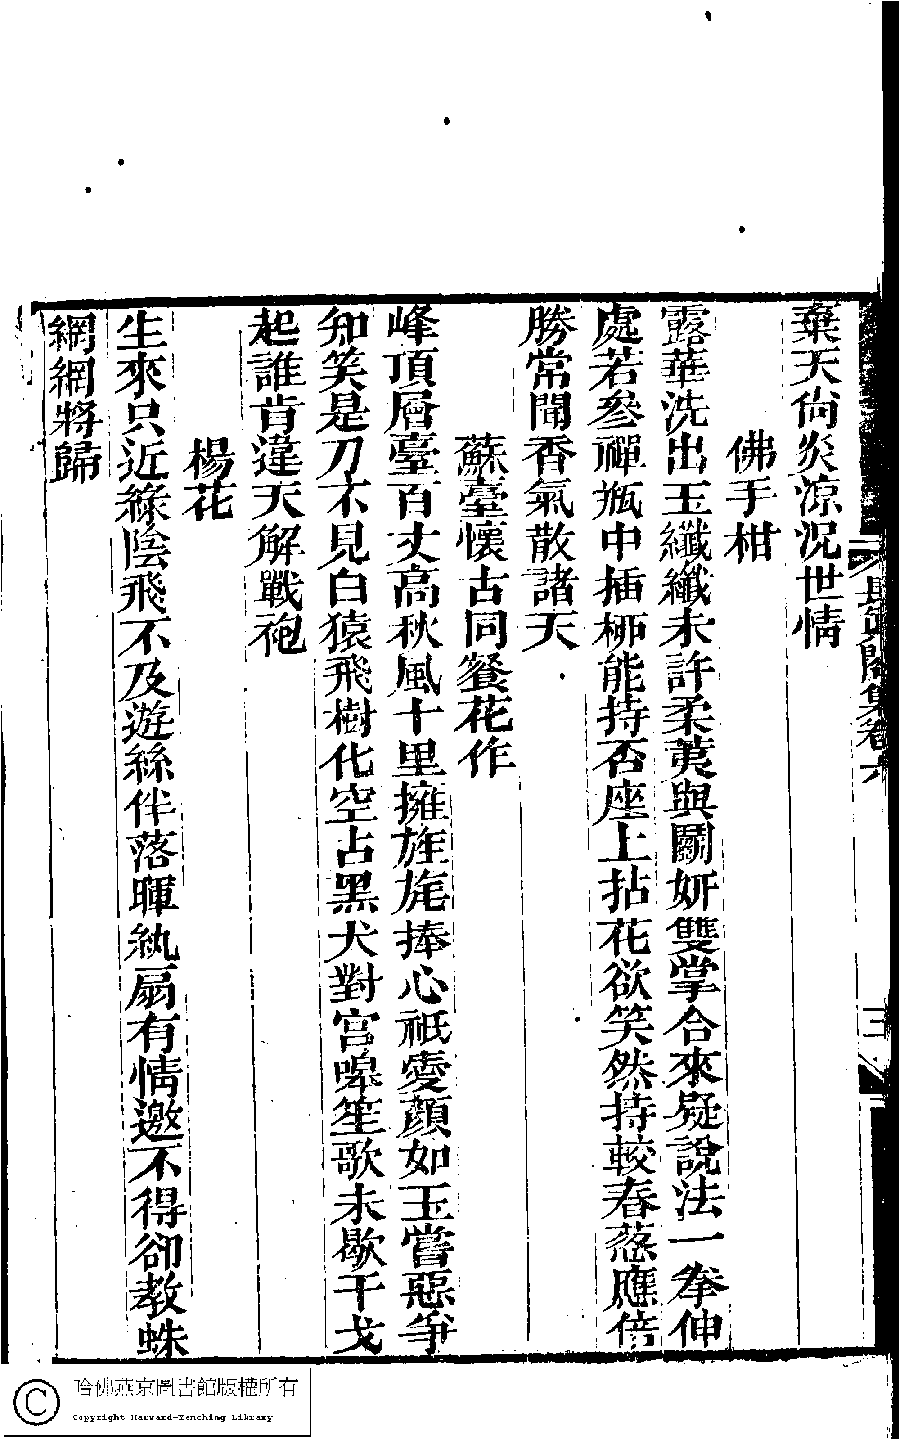 棄天尙炎涼況世情
佛手柑
露華洗出玉纖纖未許柔荑與鬬妍雙掌合來疑說法一拳伸
處若參禪瓶中插柳能持否座上拈花欲笑然持較春葱應倍
勝常聞香氣散諸天
蘇臺懷古同餐花作
峰頂層臺百丈高秋風十里擁旌旄捧心祇愛顏如玉嘗惡爭
知笑是刀不見白猿飛樹化空占黑犬對宮嘷笙歌未歇干戈
起誰肯違天解戰袍
楊花
生來只近綠陰飛不及遊絲伴落暉紈扇有情邀不得卻教蛛
網網將歸
長眞閣集卷六
三
哈佛燕京圖書館版權所有
Copyright Harvard-Yenching Library